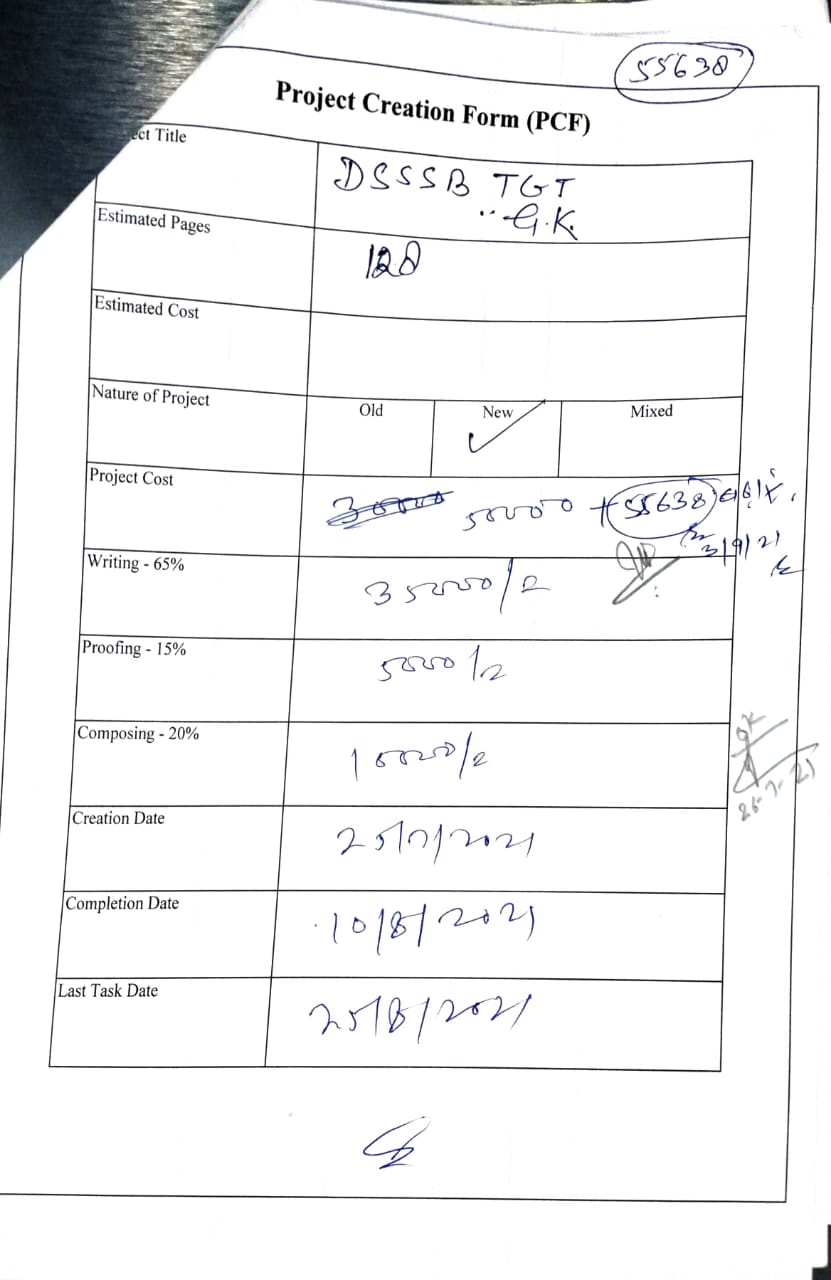 55638
Project Creation Form (PCF)
ect Title
DSSSB TGT
" G.K.
Estimated Pages
128
Estimated Cost
Nature of Project
Old
New
Mixed
Project Cost
30000 50000 + 55638
3/9/21
Writing - 65%
35000/2
Proofing - 15%
5000/2
Composing - 20%
10000/2
Creation Date
25/7/2021
26-7-21
Completion Date
10/8/2021
Last Task Date
25/8/2021